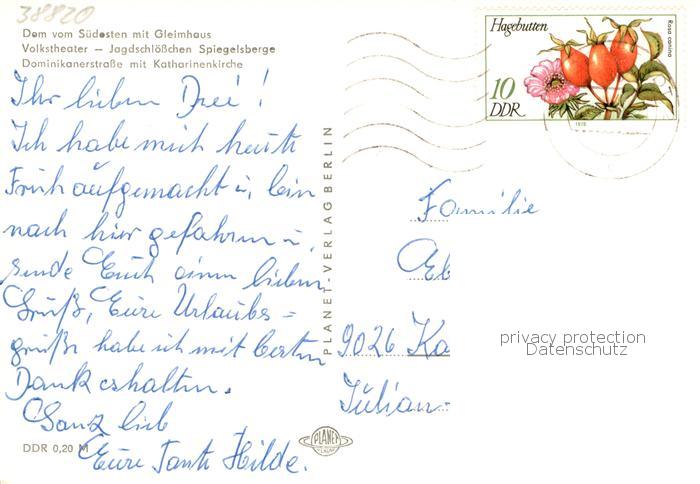 38820
Dom vom Südosten mit Gleimhaus
Volkstheater – Jagdschlößchen Spiegelsberge
Dominikanerstraße mit Katharinenkirche
Hagebutten
Rosa canina
10
DDR
1978
Ihr lieben Drei!
Ich habe mich heute
Früh aufgemacht u. bin
nach hier gefahren u.
sende Euch einen lieben
Gruß, Eure Urlaubs=
grüße habe ich mit bestem
Dank erhalten.
Ganz lieb
Eure Tante Hilde.
DDR 0,20 M
PLANET-VERLAG BERLIN
PLANET
VERLAG
Familie
Eb
9026 Ka
Julian-
privacy protection
Datenschutz